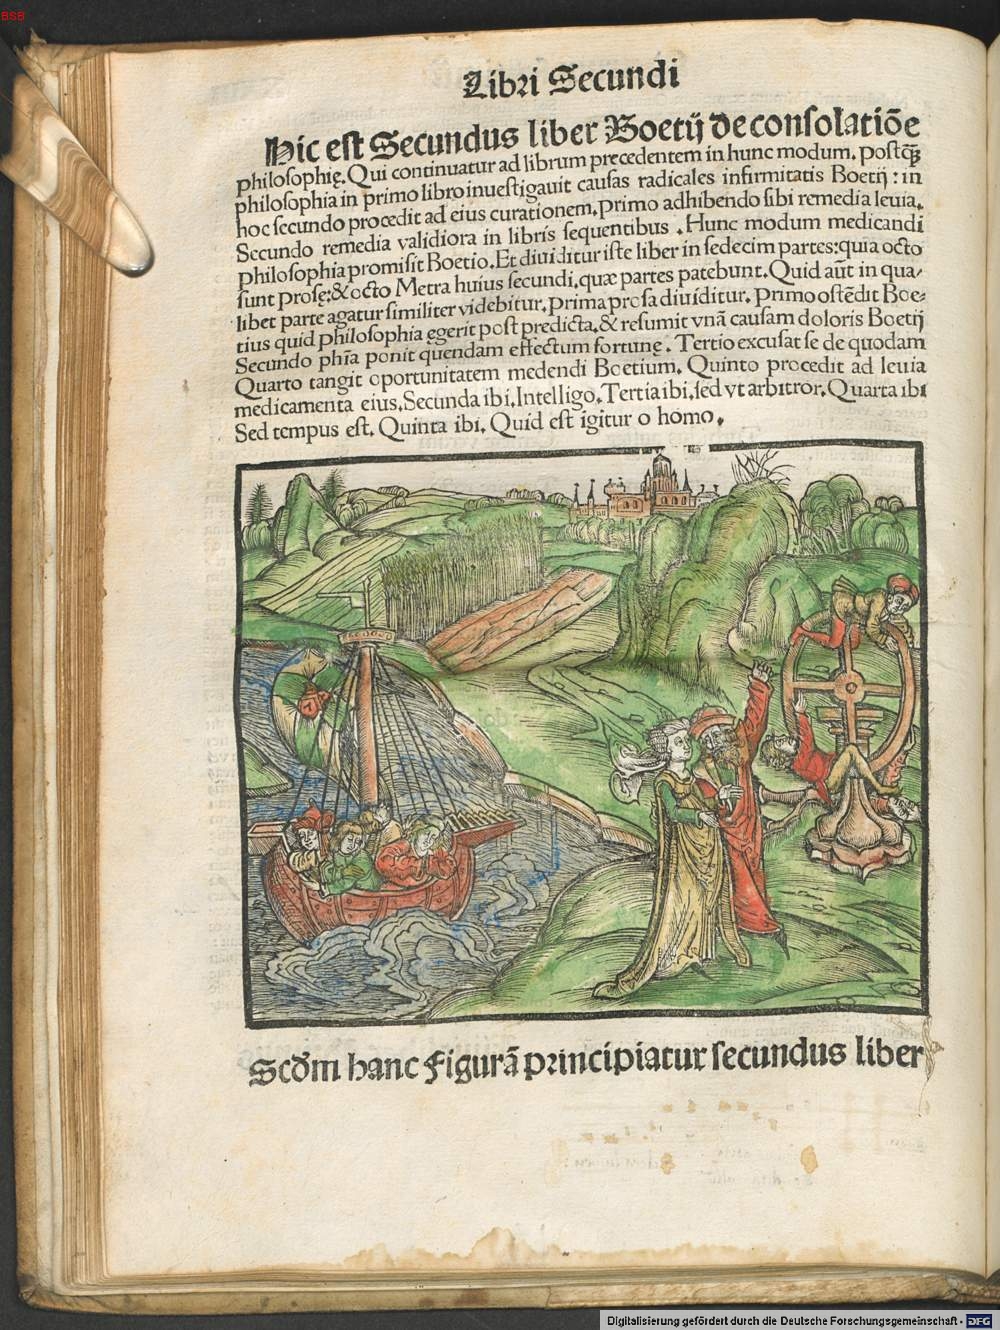 BSB
Libri Secundi
Hic est Secundus liber Boetij de consolatiõe
philosophię. Qui continuatur ad librum precedentem in hunc modum. Postq̃
philosophia in primo libro inuestigauit causas radicales infirmitatis Boetij : in
hoc secundo procedit ad eius curationem. Primo adhibendo sibi remedia leuia.
Secundo remedia validiora in libris sequentibus . Hunc modum medicandi
Philosophia promisit Boetio. Et diuiditur iste liber in sedecim partes: quia octo
sunt prosę: & octo Metra huius secundi, quæ partes patebunt. Quid aũt in qua/
libet parte agatur similiter videbitur. Prima prosa diuiditur. Primo ostẽdit Boe/
tius quid philosophia ęgerit post predicta. & resumit vnã causam doloris Boetij
Secundo phĩa ponit quendam effectum fortunę. Tertio excusat se de quodam
Quarto tangit oportunitatem medendi Boetium. Quinto procedit ad leuia
medicamenta eius. Secunda ibi. Intelligo. Tertia ibi. sed vt arbitror. Quarta ibi
Sed tempus est. Quinta ibi. Quid est igitur o homo.
Scd̃m hanc figurã principiatur secundus liber
Digitalisierung gefördert durch die Deutsche Forschungsgemeinschaft - DFG